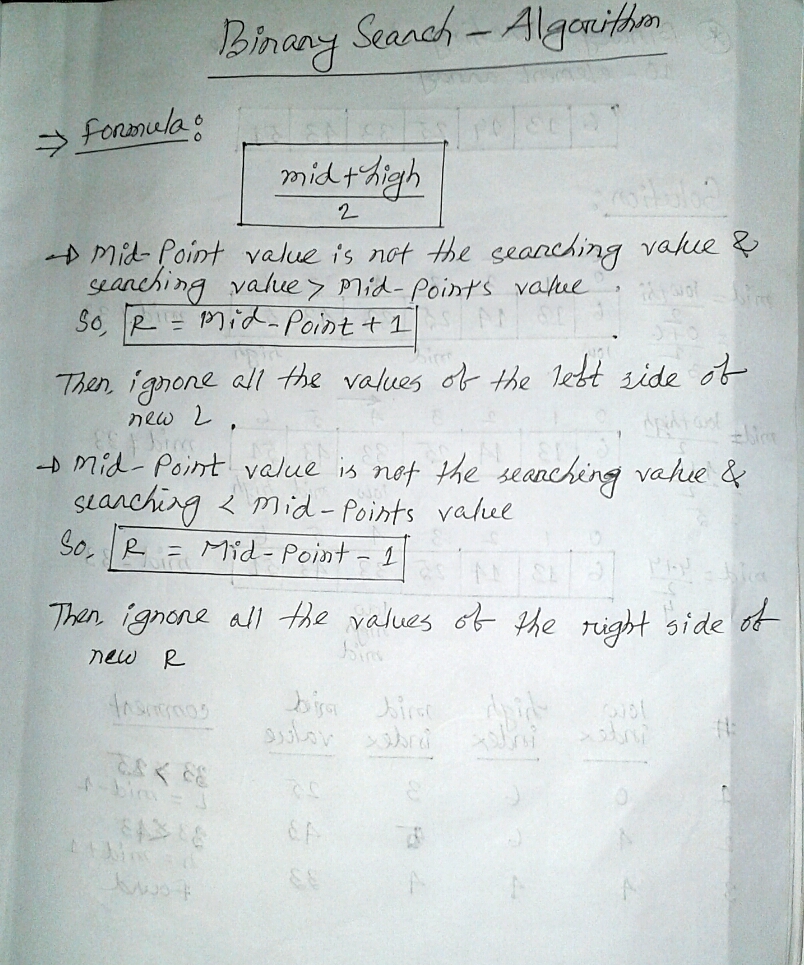 Binary Search - Algorithm
⇒ Formula:
mid + high
2
→ Mid-Point value is not the searching value &
searching value > Mid-Points value.
So, R = Mid-Point + 1
Then, ignore all the values of the left side of
new L.
→ Mid-Point value is not the searching value &
searching < Mid-Points value
So, R = Mid-Point - 1
Then, ignore all the values of the right side of
new R